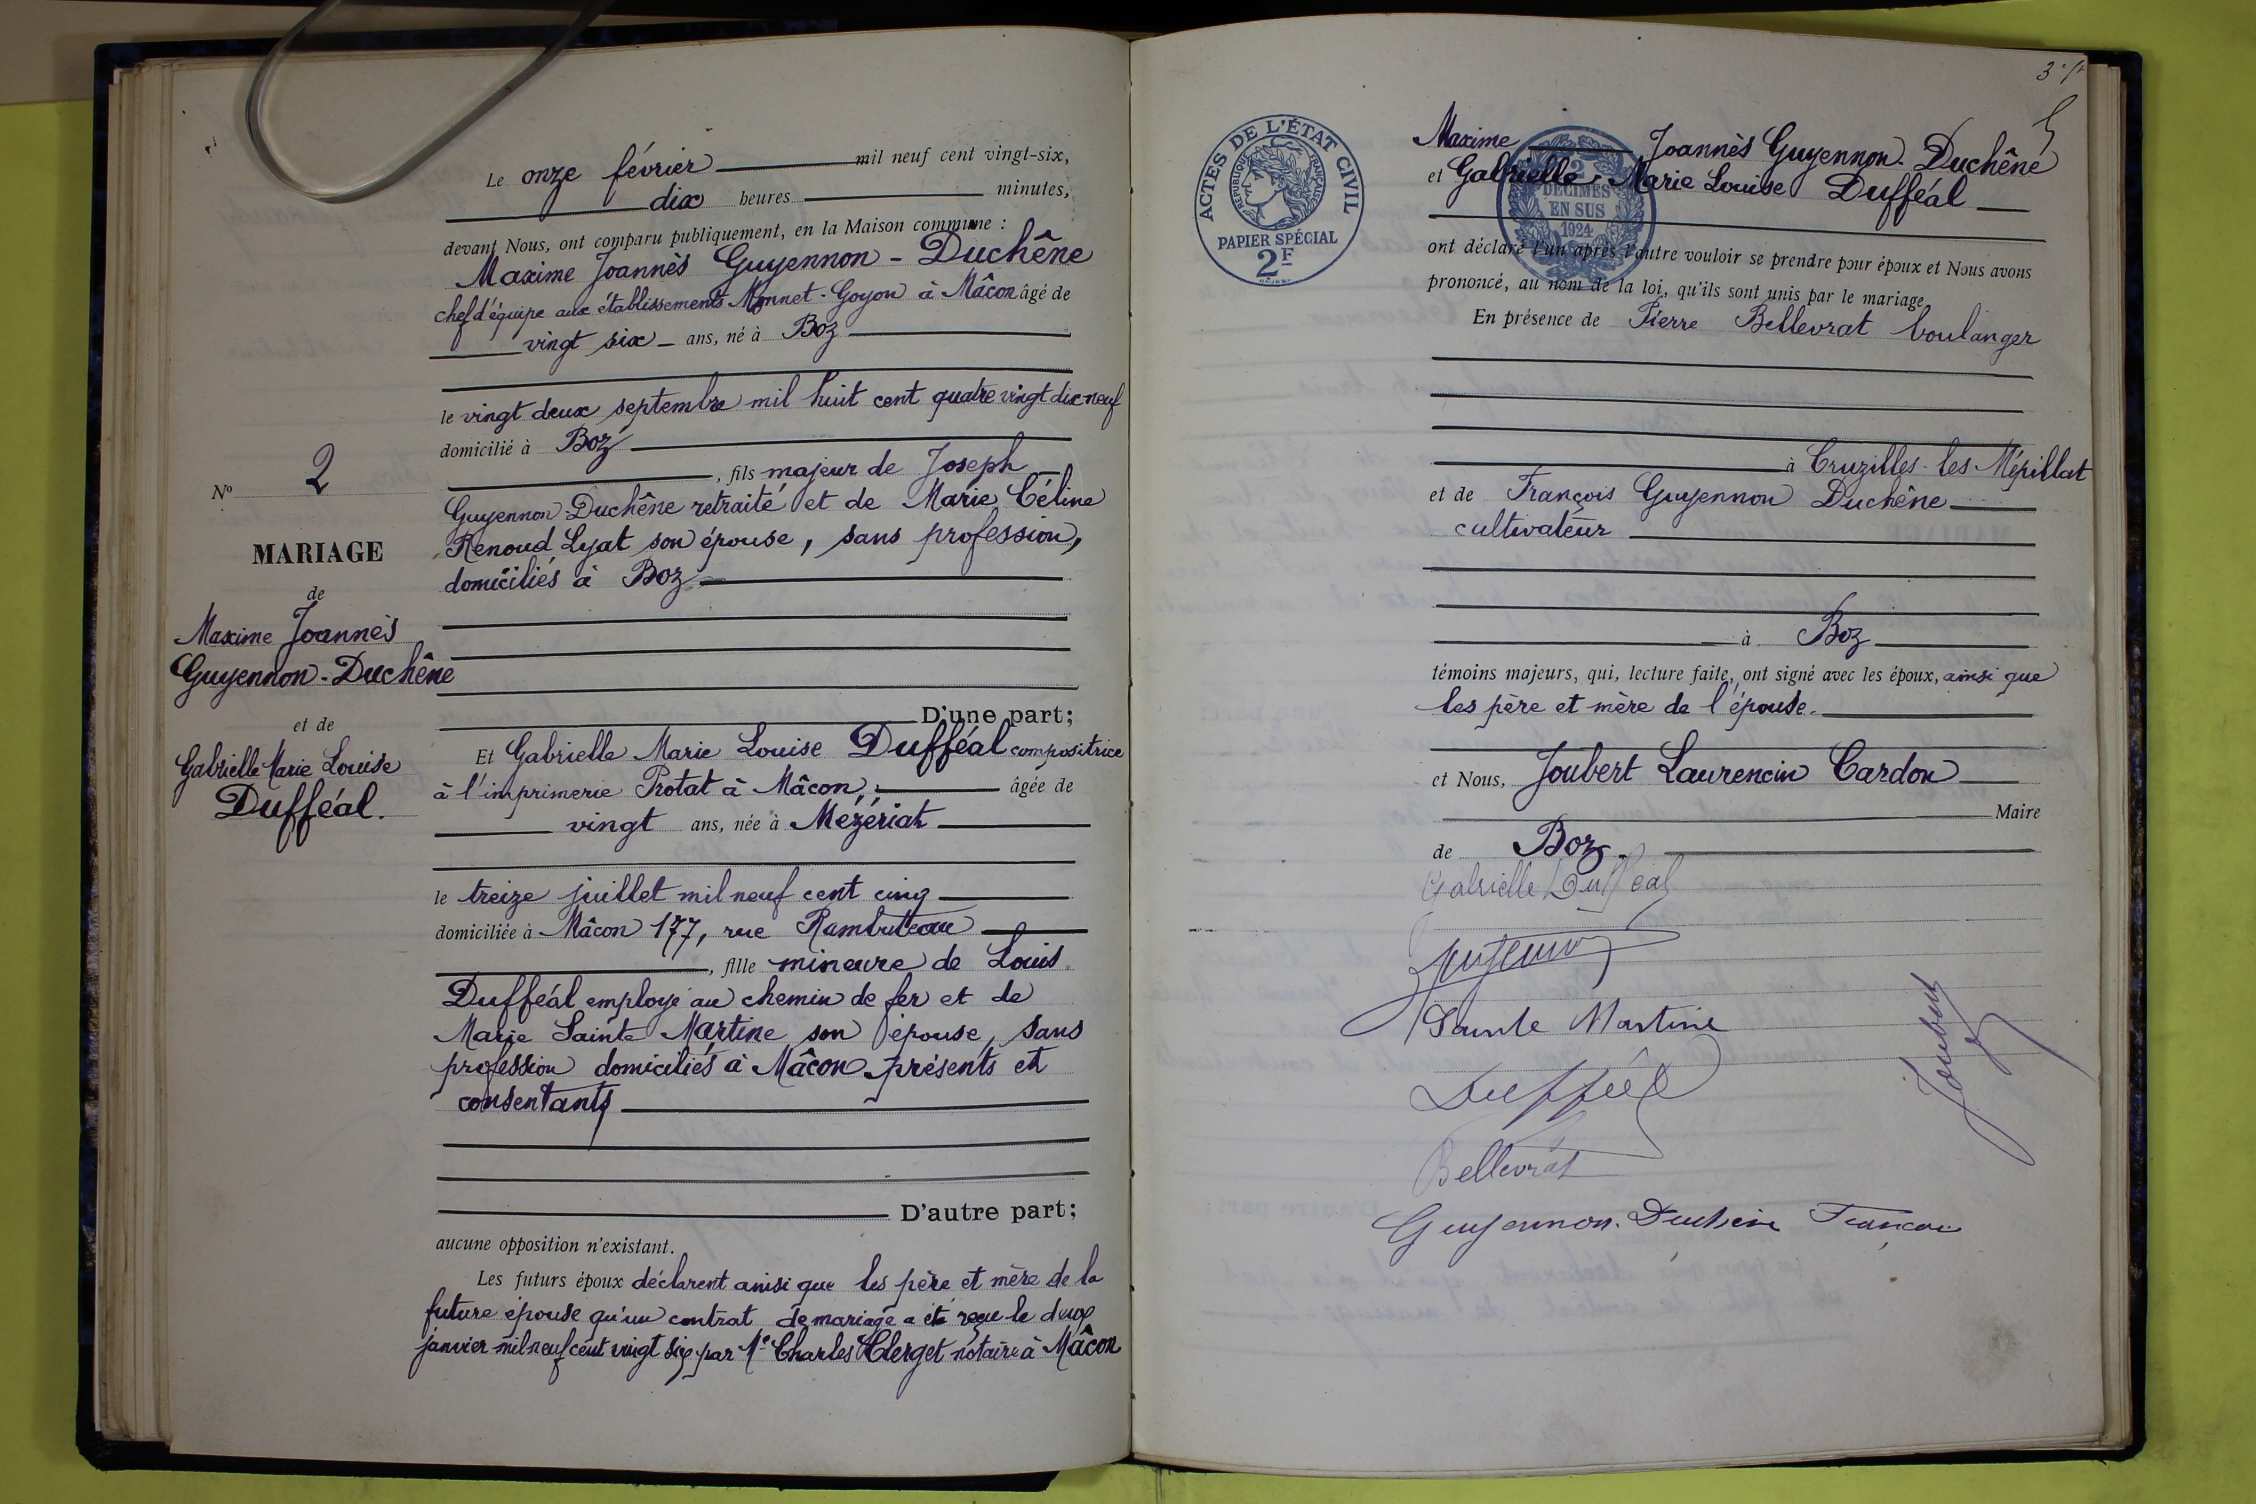 Le onze février mil neuf cent vingt-six,
dix heures minutes,
devant Nous, ont comparu publiquement, en la Maison commune :
Maxime Joannès Guyennon - Duchêne
chef d'équipe aux établissements Monnet-Goyon à Mâcon âgé de
vingt six ans, né à Boz
le vingt deux septembre mil huit cent quatre vingt dix neuf
domicilié à Boz
, fils majeur de Joseph
Guyennon-Duchêne retraité et de Marie Céline
Renoud Lyat son épouse, sans profession,
domiciliés à Boz
N° 2
MARIAGE
de
Maxime Joannès
Guyennon-Duchêne
et de
Gabrielle Marie Louise
Dufféal.
D'une part;
Et Gabrielle Marie Louise Dufféal compositrice
à l'imprimerie Protat à Mâcon, âgée de
vingt ans, née à Mézériat
le treize juillet mil neuf cent cinq
domiciliée à Mâcon 177, rue Rambuteau
, fille mineure de Louis
Dufféal employé au chemin de fer et de
Marie Sainte Martine son épouse, sans
profession domiciliés à Mâcon présents et
consentants
D'autre part;
aucune opposition n'existant.
Les futurs époux déclarent ainsi que les père et mère de la
future épouse qu'un contrat de mariage a été reçu le deux
janvier mil neuf cent vingt six par Me Charles Clerget notaire à Mâcon
ACTES DE L'ÉTAT CIVIL
RÉPUBLIQUE FRANÇAISE
PAPIER SPÉCIAL
2F
2
DÉCIMES
EN SUS
1924
Maxime Joannès Guyennon-Duchêne
et Gabrielle Marie Louise Dufféal
ont déclaré l'un après l'autre vouloir se prendre pour époux et Nous avons
prononcé, au nom de la loi, qu'ils sont unis par le mariage.
En présence de Pierre Bellevrat boulanger
à Cruzilles-les-Mépillat
et de François Guyennon Duchêne
cultivateur
à Boz
témoins majeurs, qui, lecture faite, ont signé avec les époux, ainsi que
les père et mère de l'épouse.
et Nous, Joubert Laurencin Cardon
Maire
de Boz
Gabrielle Dufféal
Guyennon
Sainte Martine
Joubert
Dufféal
Bellevrat
Guyennon-Duchêne François